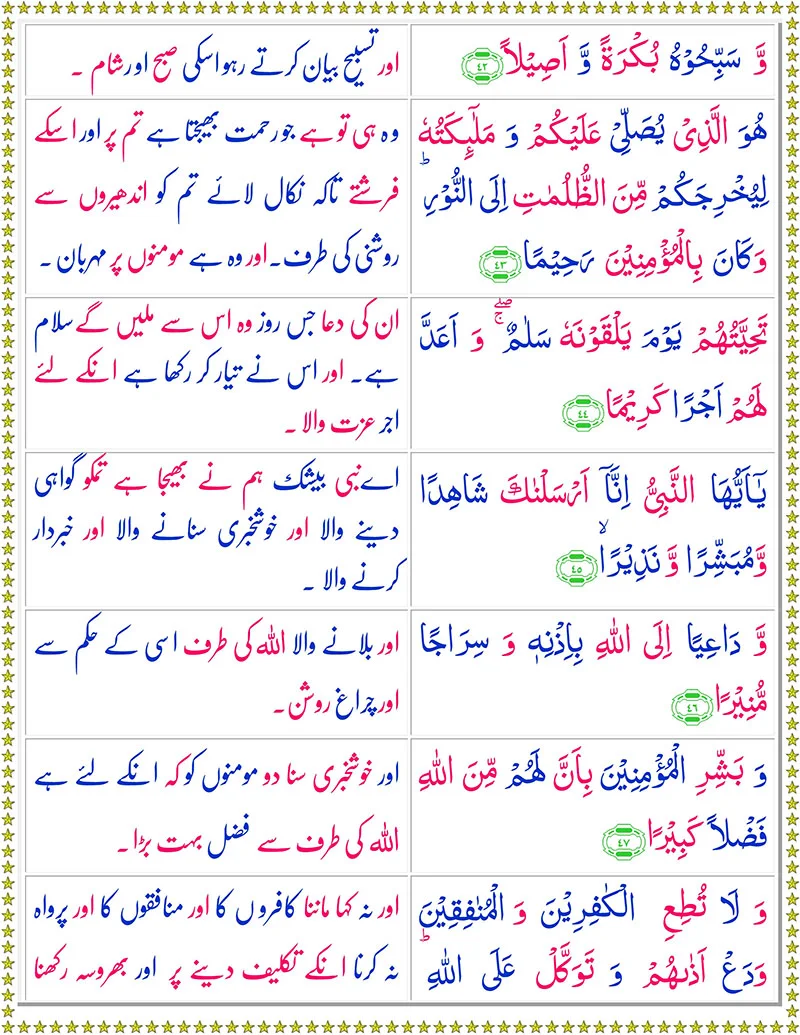 وَّ سَبِّحُوْهُ بُكْرَةً وَّ اَصِيْلًا ﴿۴۲﴾
اور تسبیح بیان کرتے رہو اسکی صبح اور شام ۔
هُوَ الَّذِیْ یُصَلِّیْ عَلَیْكُمْ وَ مَلٰٓىِٕكَتُهٗ
لِیُخْرِجَكُمْ مِّنَ الظُّلُمٰتِ اِلَی النُّوْرِ ؕ
وَكَانَ بِالْمُؤْمِنِیْنَ رَحِیْمًا ﴿۴۳﴾
وہ ہی تو ہے جو رحمت بھیجتا ہے تم پر اور اسکے
فرشتے تاکہ نکال لائے تم کو اندھیروں سے
روشنی کی طرف۔ اور وہ ہے مومنوں پر مہربان ۔
تَحِیَّتُهُمْ یَوْمَ یَلْقَوْنَهٗ سَلٰمٌ ۖۚ وَ اَعَدَّ
لَهُمْ اَجْرًا كَرِیْمًا ﴿۴۴﴾
ان کی دعا جس روز وہ اس سے ملیں گے سلام
ہے۔ اور اس نے تیار کر رکھا ہے انکے لئے
اجر عزت والا ۔
یٰۤاَیُّهَا النَّبِیُّ اِنَّاۤ اَرْسَلْنٰكَ شَاهِدًا
وَّمُبَشِّرًا وَّ نَذِیْرًا ۙ ﴿۴۵﴾
اے نبی بیشک ہم نے بھیجا ہے تمکو گواہی
دینے والا اور خوشخبری سنانے والا اور خبردار
کرنے والا ۔
وَّ دَاعِیًا اِلَی اللّٰهِ بِاِذْنِهٖ وَ سِرَاجًا
مُّنِیْرًا ﴿۴۶﴾
اور بلانے والا اللہ کی طرف اسی کے حکم سے
اور چراغ روشن۔
وَ بَشِّرِ الْمُؤْمِنِیْنَ بِاَنَّ لَهُمْ مِّنَ اللّٰهِ
فَضْلًا كَبِیْرًا ﴿۴۷﴾
اور خوشخبری سنا دو مومنوں کو کہ انکے لئے ہے
اللہ کی طرف سے فضل بہت بڑا ۔
وَ لَا تُطِعِ الْكٰفِرِیْنَ وَ الْمُنٰفِقِیْنَ
وَدَعْ اَذٰىهُمْ وَ تَوَكَّلْ عَلَی اللّٰهِ ؕ
اور نہ کہا ماننا کافروں کا اور منافقوں کا اور پرواہ
نہ کرنا انکے تکلیف دینے پر اور بھروسہ رکھنا